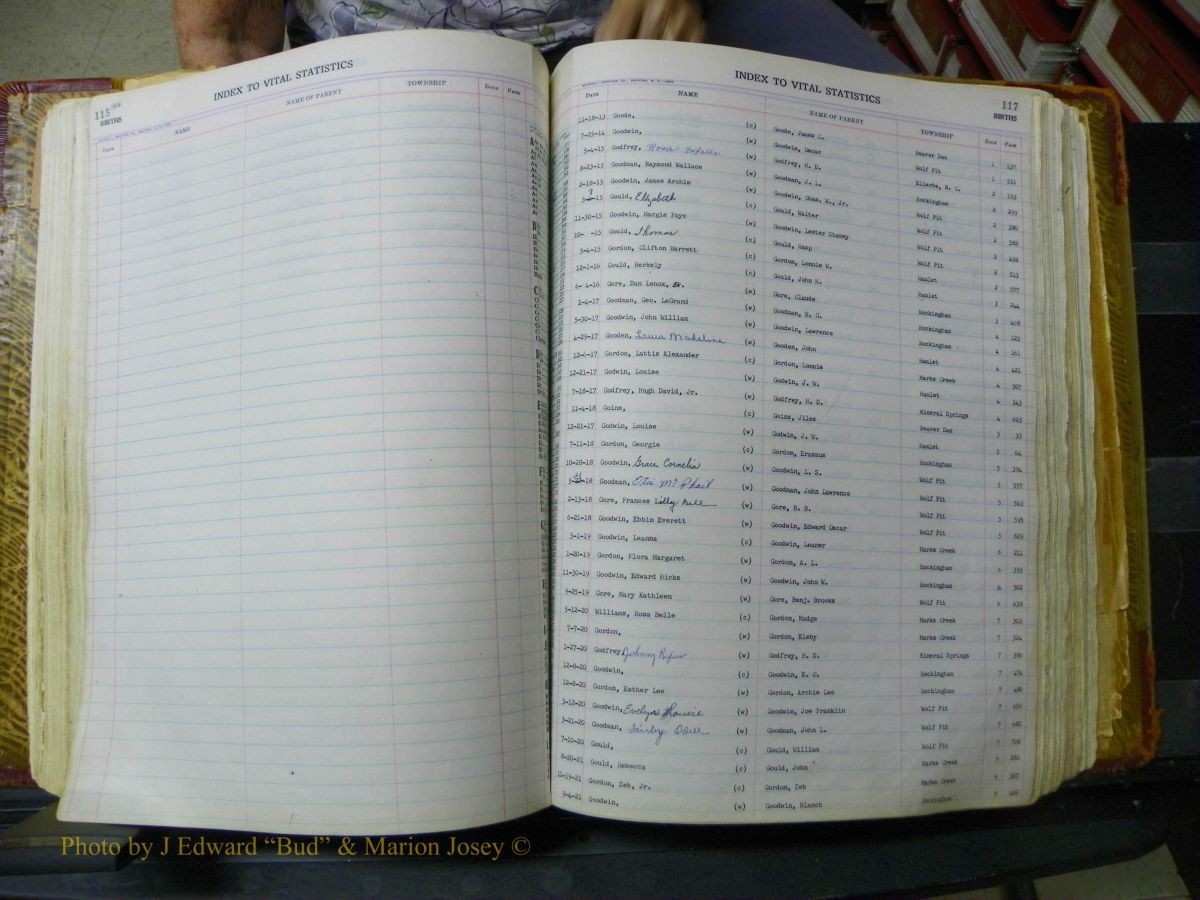 115
BIRTHS
INDEX TO VITAL STATISTICS
Date NAME NAME OF PARENT TOWNSHIP Book Page
INDEX TO VITAL STATISTICS
117
BIRTHS
Date NAME NAME OF PARENT TOWNSHIP Book Page
11-18-13 Goode, (c) Goode, James C. Beaver Dam 1 137
7-25-14 Goodwin, (w) Goodwin, Oscar Wolf Pit 1 551
5-4-15 Godfrey, Rosa (w) Godfrey, H. D. Ellerbe, N. C. 2 153
8-23-15 Goodman, Raymond Wallace (w) Goodman, J. L. Rockingham 2 299
2-18-15 Goodwin, James Archie (w) Goodwin, Chas. W., Jr. Wolf Pit 2 380
3-2-15 Gould, Elizabeth (c) Gould, Walter Wolf Pit 2 382
11-30-15 Goodwin, Margie Faye (w) Goodwin, Lester Stamey Wolf Pit 2 492
10- -15 Gould, Thomas (c) Gould, Hamp Wolf Pit 2 513
5-4-15 Gordon, Clifton Barrett (c) Gordon, Lonnie W. Hamlet 2 577
12-1-16 Gould, Berkely (c) Gould, John H. Hamlet 3 244
6- 4-16 Gore, Dan Lenox, Sr. (w) Gore, Claude Rockingham 3 418
1-4-17 Goodman, Geo. LeGrand (w) Goodman, B. G. Rockingham 4 123
5-30-17 Goodwin, John William (w) Goodwin, Lawrence Rockingham 4 161
4-29-17 Gooden, Laura Madeline (w) Gooden, John Hamlet 4 421
12-6-17 Gordon, Lattis Alexander (c) Gordon, Lonnie Marks Creek 4 507
12-21-17 Godwin, Louise (w) Godwin, J. W. Hamlet 4 543
7-18-17 Godfrey, Hugh David, Jr. (w) Godfrey, H. D. Mineral Springs 4 605
11-4-18 Goins, (c) Goins, Jiles Beaver Dam 5 33
12-21-17 Godwin, Louise (w) Godwin, J. W. Hamlet 5 64
7-11-18 Gordon, Georgie (c) Gordon, Erasmus Rockingham 5 394
10-28-18 Goodwin, Grace Cornelia (w) Goodwin, L. S. Wolf Pit 5 557
Goodman, Otis McPhail (w) Goodman, John Lawrence Wolf Pit 5 563
2-13-18 Gore, Frances Lilly Bell (w) Gore, B. B. Wolf Pit 5 595
6-21-18 Goodwin, Ebbin Everett (w) Goodwin, Edward Oscar Wolf Pit 5 629
3-1-19 Goodwin, Leanna (c) Goodwin, Leaner Marks Creek 6 211
1-20-19 Gordon, Flora Margaret (w) Gordon, A. L. Rockingham 6 393
11-30-19 Goodwin, Edward Hicks (w) Goodwin, John W. Rockingham 6 502
9-25-19 Gore, Mary Kathleen (w) Gore, Benj. Brooks Wolf Pit 6 638
5-12-20 Williams, Rosa Belle (c) Gordon, Madge Marks Creek 7 303
7-7-20 Gordon, (w) Gordon, Elsby Marks Creek 7 324
1-27-20 Godfrey, Johnny (w) Godfrey, H. D. Mineral Springs 7 386
12-8-20 Goodwin, (c) Goodwin, E. G. Rockingham 7 474
12-8-20 Gordon, Esther Lee (w) Gordon, Archie Lee Rockingham 7 489
3-12-20 Goodwin, Evelyn Louise (w) Goodwin, Joe Franklin Wolf Pit 7 659
3-21-20 Goodman, Fairley Odell (w) Goodman, John L. Wolf Pit 7 682
7-10-20 Gould, (c) Gould, William Wolf Pit 7 708
8-20-21 Gould, Rebecca (c) Gould, John Marks Creek
11-19-21 Gordon, Zeb, Jr. (c) Gordon, Zeb Marks Creek
9-4-21 Goodwin, (w) Goodwin, Blanch Rockingham
Photo by J Edward “Bud” & Marion Josey ©